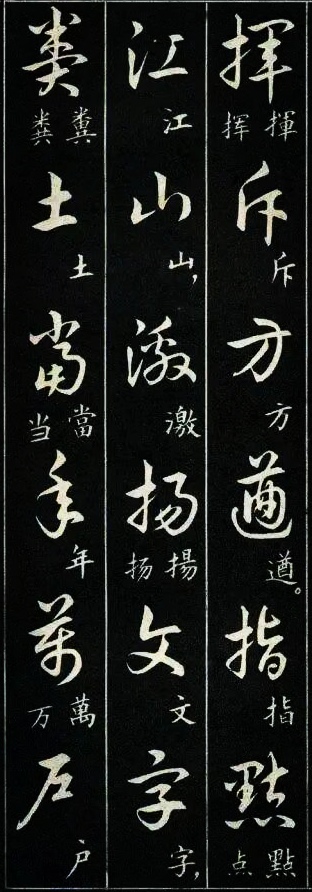 揮揮挥斥斥方方遒遒。指指點點点
江江山山,激激揚揚扬文文字字,
粪糞粪土土當當当年年萬萬万户户